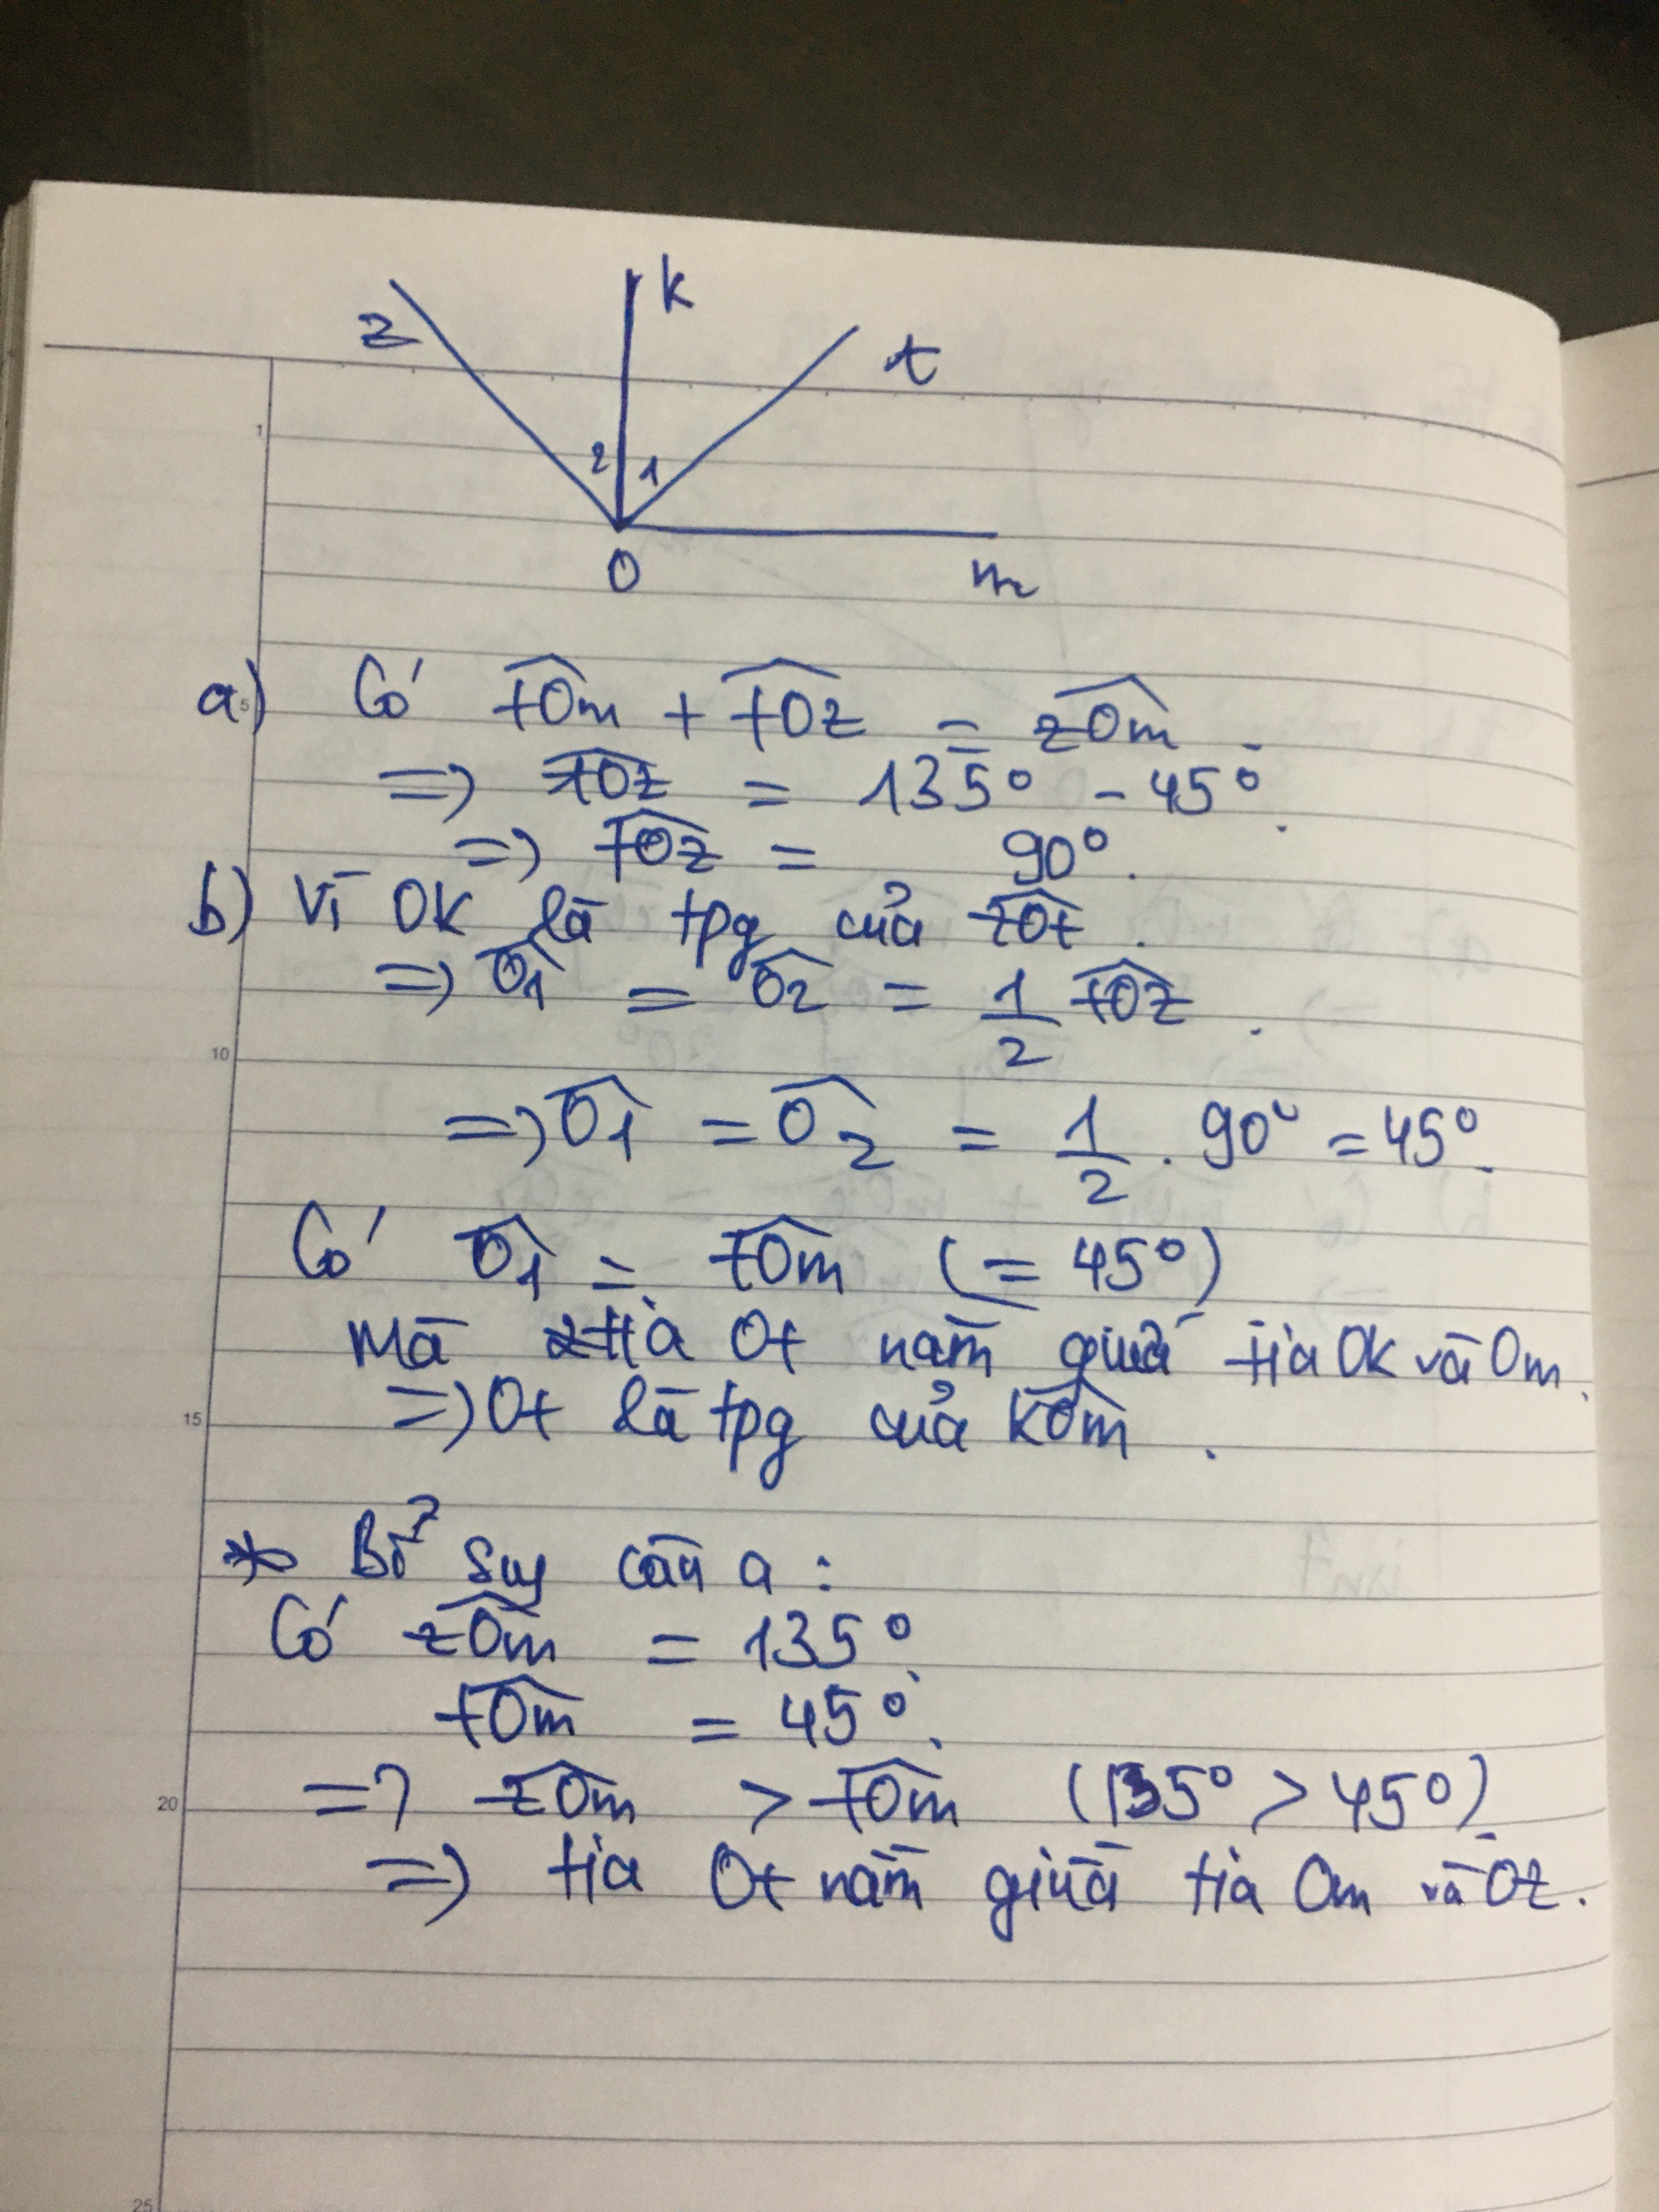 z k t
2 1
O m
1
a) Có tÔm + tÔz = zÔm.
5
=> tÔz = 135° - 45°.
=> tÔz = 90°.
b) Vì OK là tpg của zÔt.
=> Ô1 = Ô2 = 1/2 tÔz.
10
=> Ô1 = Ô2 = 1/2 . 90° = 45°.
Có Ô1 = tÔm (= 45°)
Mà tia Ot nằm giữa tia OK và Om.
=> Ot là tpg của KÔm.
15
* Bổ sug câu a:
Có zÔm = 135°.
tÔm = 45°.
=> zÔm > tÔm (135° > 45°).
20
=> tia Ot nằm giữa tia Om và Oz.
25